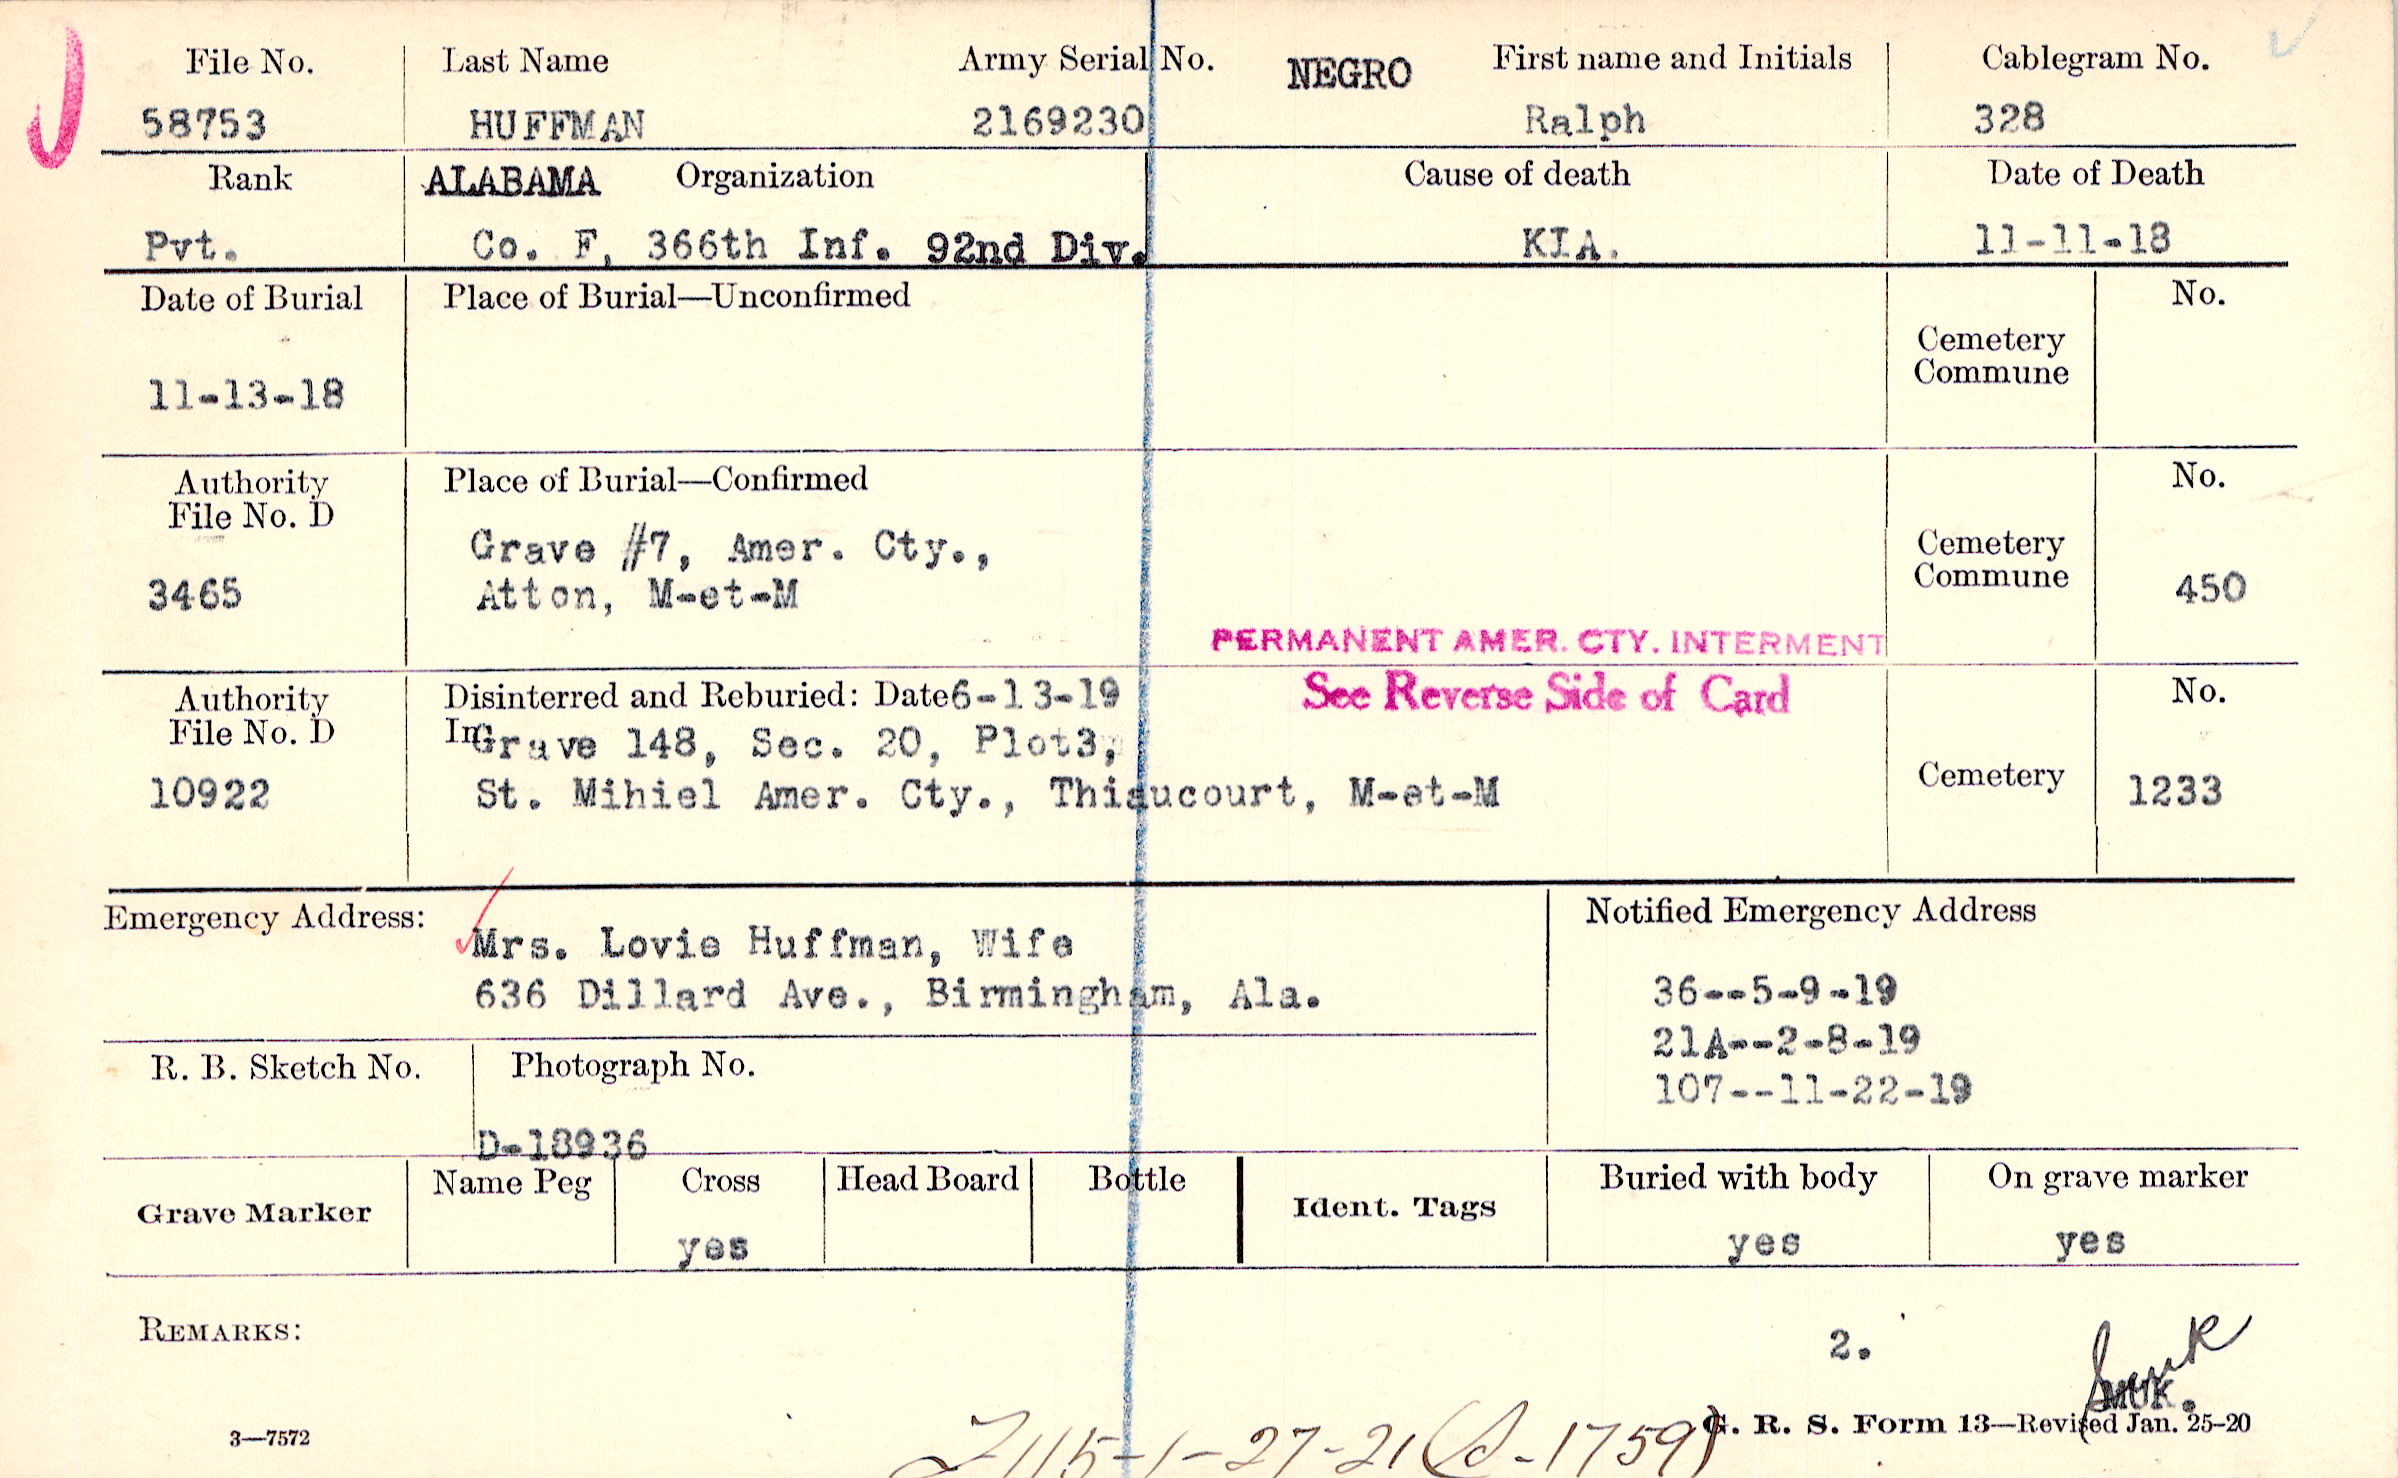 File No. Last Name Army Serial No. NEGRO First name and Initials Cablegram No.
58753 HUFFMAN 2169230 Ralph 328
Rank ALABAMA Organization Cause of death Date of Death
Pvt. Co. F, 366th Inf. 92nd Div. KIA. 11-11-18
Date of Burial Place of Burial—Unconfirmed No.
Cemetery
Commune
11-13-18
Authority Place of Burial—Confirmed No.
File No. D
Grave #7, Amer. Cty., Cemetery
3465 Atton, M-et-M Commune 450
PERMANENT AMER. CTY. INTERMENT
Authority Disinterred and Reburied: Date 6-13-19 See Reverse Side of Card No.
File No. D In Grave 148, Sec. 20, Plot3,
10922 St. Mihiel Amer. Cty., Thiaucourt, M-et-M Cemetery 1233
Emergency Address: Notified Emergency Address
Mrs. Lovie Huffman, Wife
636 Dillard Ave., Birmingham, Ala. 36--5-9-19
21A--2-8-19
R. B. Sketch No. Photograph No. 107--11-22-19
D-18936
Grave Marker Name Peg Cross Head Board Bottle Ident. Tags Buried with body On grave marker
yes yes yes
REMARKS:
2.
MUK.
G. R. S. Form 13—Revised Jan. 25-20
3—7572
115-1-27-21 (A-1759)